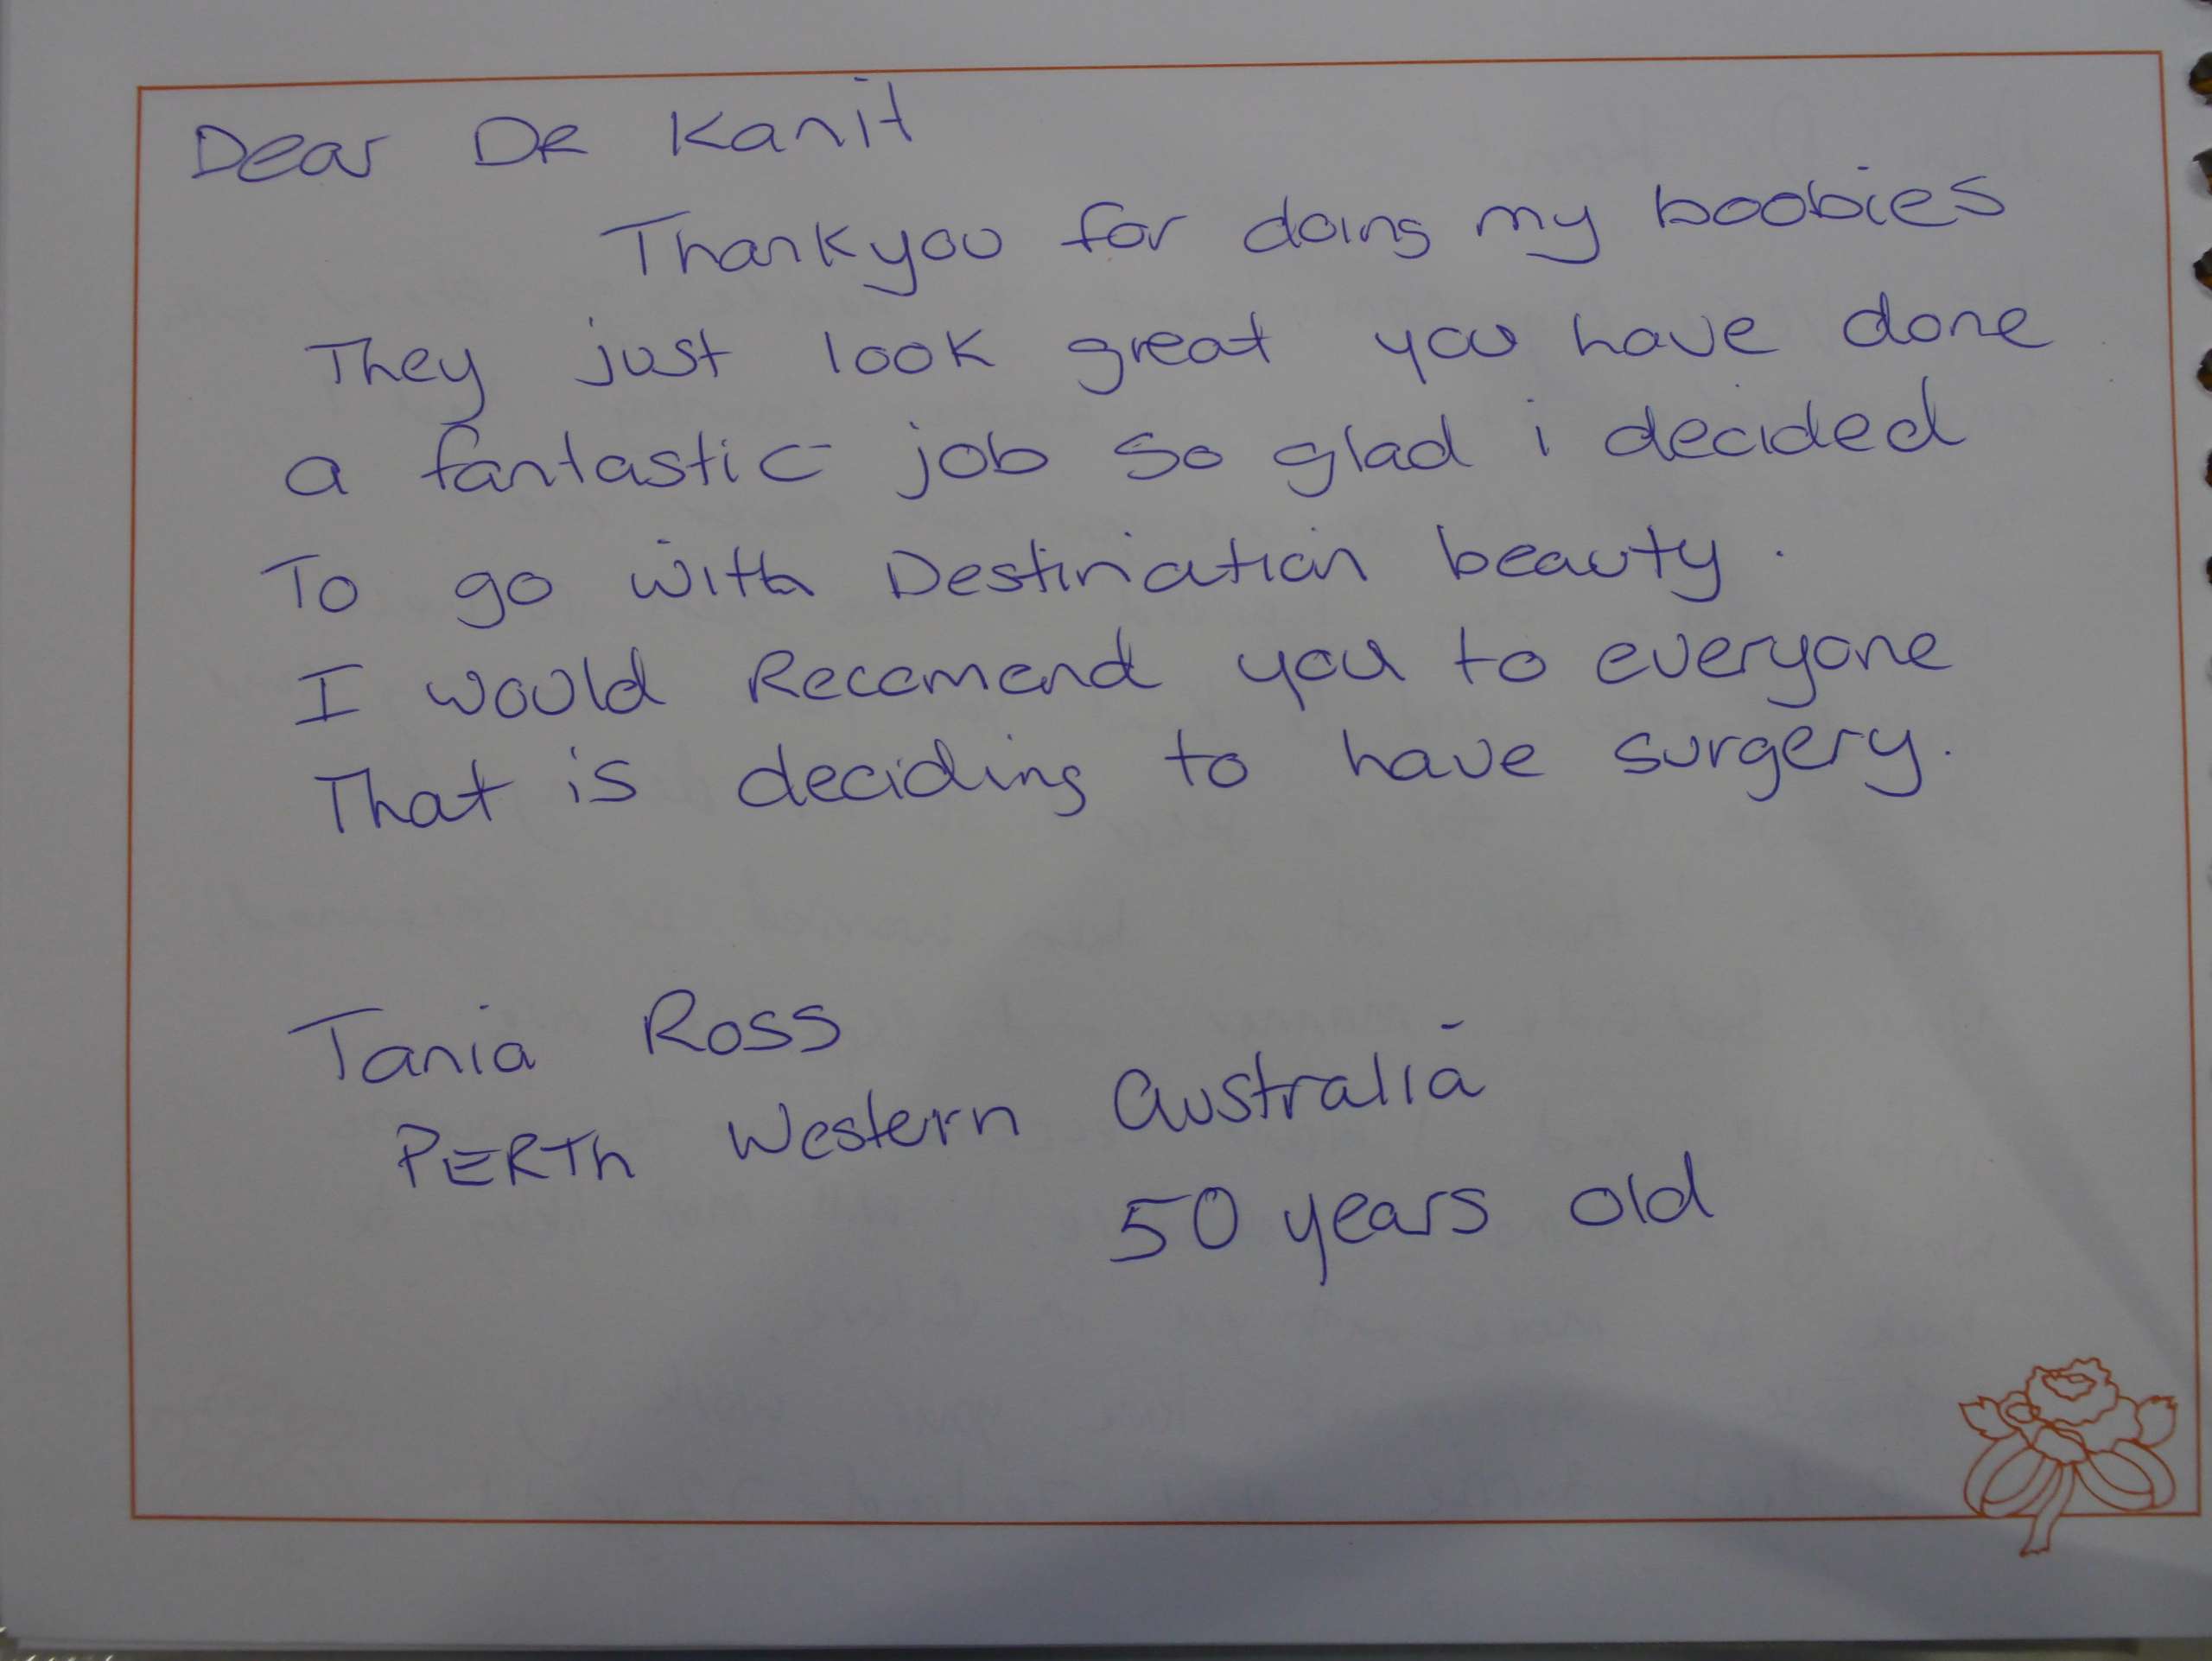 Dear DR Kanit
Thankyou for doing my boobies
They just look great you have done
a fantastic job so glad i decided
To go with Destination beauty.
I would Recomend you to everyone
That is deciding to have surgery.
Tania Ross
PERTh Western Australia
50 years old